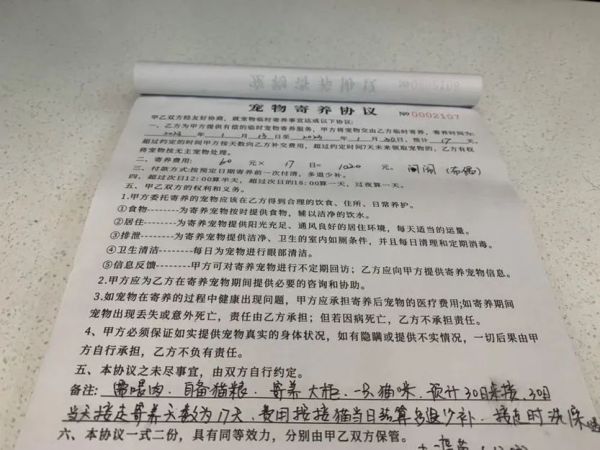 宠物寄养协议
№0002107
甲乙双方经友好协商，就宠物临时寄养事宜达成以下协议:
一、乙方为甲方提供有偿的临时宠物寄养服务，甲方将宠物交由乙方临时寄养，寄养时间为:
年 1 月 13 日至 年 1 月 30 日，预计 17 天，
超过约定的时间甲方按天数向乙方补交费用，超过约定时间7天未来领取宠物的，乙方有权
将宠物按无主宠物处理。
二、寄养费用: 60 元× 17 日= 1020 元
三、付款方式:按预定日期寄养前一次付清，多退少补。
四、超过次日12:00算半天，超过次日的18:00算一天，过夜算一天。
五、甲乙双方的权利和义务。
1.甲方委托寄养的宠物应该在乙方得到合理的饮食、住所、日常养护。
①食物--------为寄养宠物按时提供食物，辅以洁净的饮水。
②居住--------为寄养宠物提供阳光充足、通风良好的居住环境，每天适当的运量。
③排泄--------为寄养宠物提供洁净、卫生的室内如厕条件，并且每日清理和定期消毒。
④卫生清洁-------每日为宠物进行眼部清洁。
⑤信息反馈--------甲方可对寄养宠物进行不定期回访；乙方应向甲方提供寄养宠物信息。
2.甲方应为乙方在寄养宠物期间提供必要的咨询和协助。
3.如宠物在寄养的过程中健康出现问题，甲方应承担寄养后宠物的医疗费用;如寄养期间
宠物出现丢失或意外死亡，责任由乙方承担；但若因病死亡，乙方不承担责任。
4、甲方必须保证如实提供宠物真实的身体状况，如有隐瞒或提供不实情况，一切后果由甲
方自行承担，乙方不负有责任。
五、本协议之未尽事宜，由双方自行约定。
备注: 喂肉．自备猫粮．寄养大柜．一只猫咪．预计30日来接．30日
当天接走寄养天数为17天．费用按接猫当日结算多退少补．接走时洗澡
六、本协议一式二份，具有同等效力，分别由甲乙双方保管。